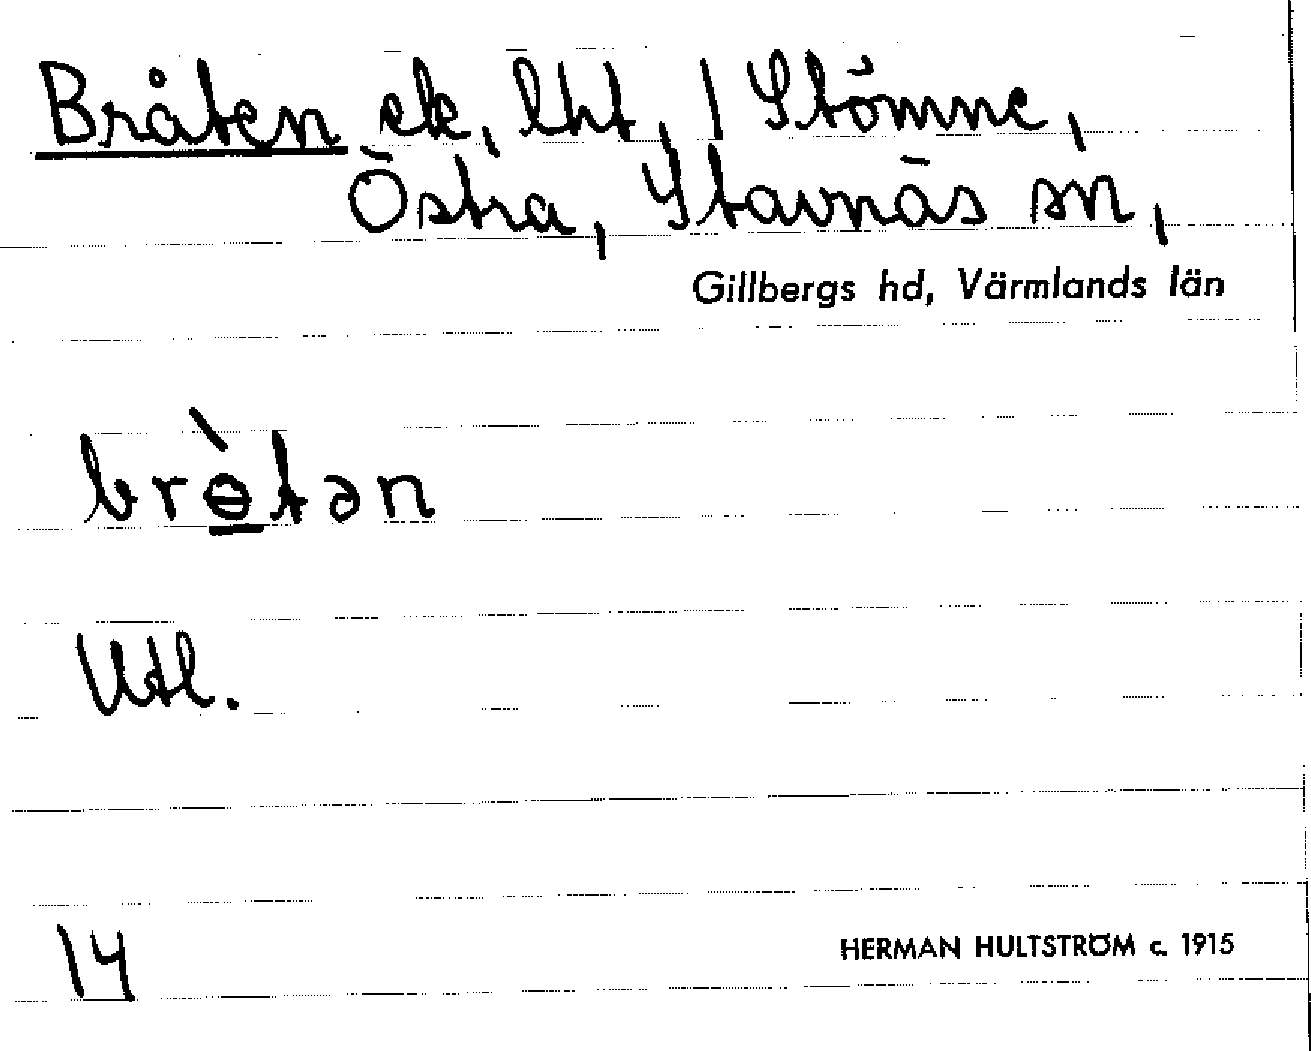 Bråten ek, lht, 1 Stömne,
Östra, Stavnäs sn,
Gillbergs hd, Värmlands län
brө̠̀tən
Utl.
14
HERMAN HULTSTRÖM c. 1915